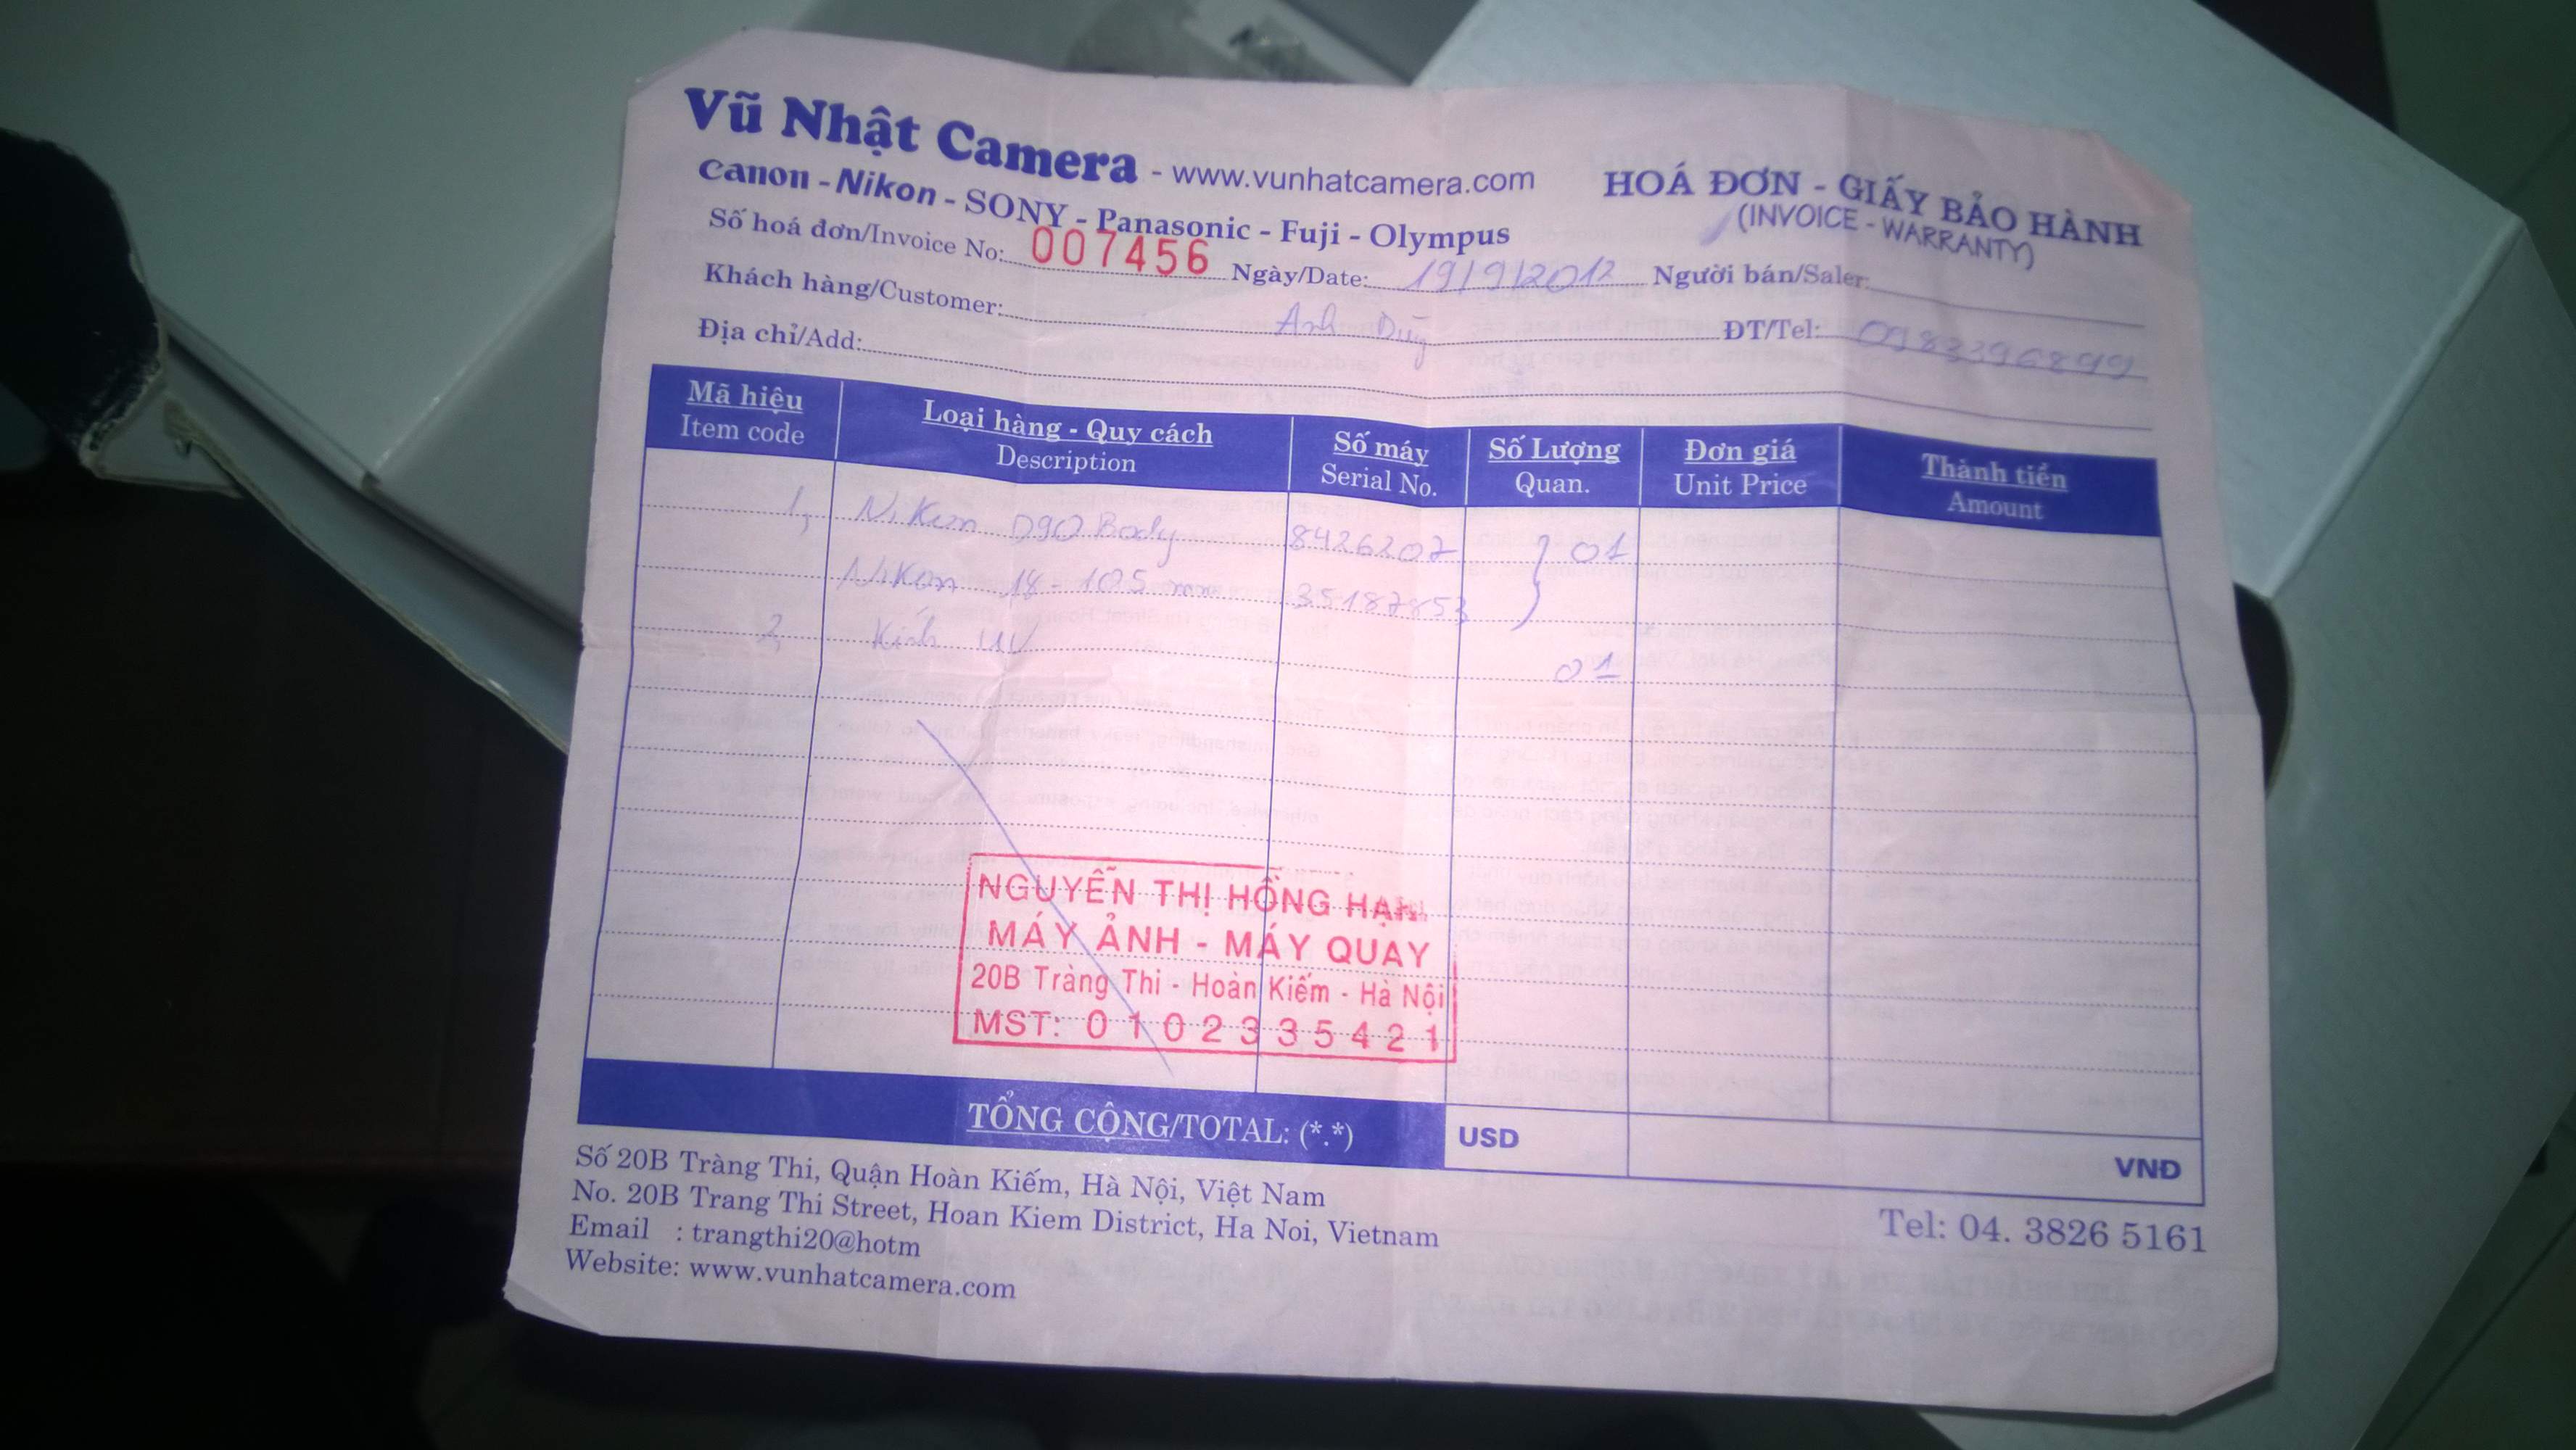 Vũ Nhật Camera - www.vunhatcamera.com
Canon - Nikon - SONY - Panasonic - Fuji - Olympus
HOÁ ĐƠN - GIẤY BẢO HÀNH
(INVOICE - WARRANTY)
Số hoá đơn/Invoice No: 007456 Ngày/Date: 19/9/2012 Người bán/Saler:
Khách hàng/Customer: Anh Dũng ĐT/Tel: 0983396899
Địa chỉ/Add:
Mã hiệu Loại hàng - Quy cách Số máy Số Lượng Đơn giá Thành tiền
Item code Description Serial No. Quan. Unit Price Amount
1, Nikon D90 Body 8426207 01
Nikon 18-105 mm 35187853
2, Kính UV 01
NGUYỄN THỊ HỒNG HẠNH
MÁY ẢNH - MÁY QUAY
20B Tràng Thi - Hoàn Kiếm - Hà Nội
MST: 0102335421
TỔNG CỘNG/TOTAL: (*.*) USD VNĐ
Số 20B Tràng Thi, Quận Hoàn Kiếm, Hà Nội, Việt Nam
No. 20B Trang Thi Street, Hoan Kiem District, Ha Noi, Vietnam
Email : trangthi20@hotm
Website: www.vunhatcamera.com
Tel: 04. 3826 5161